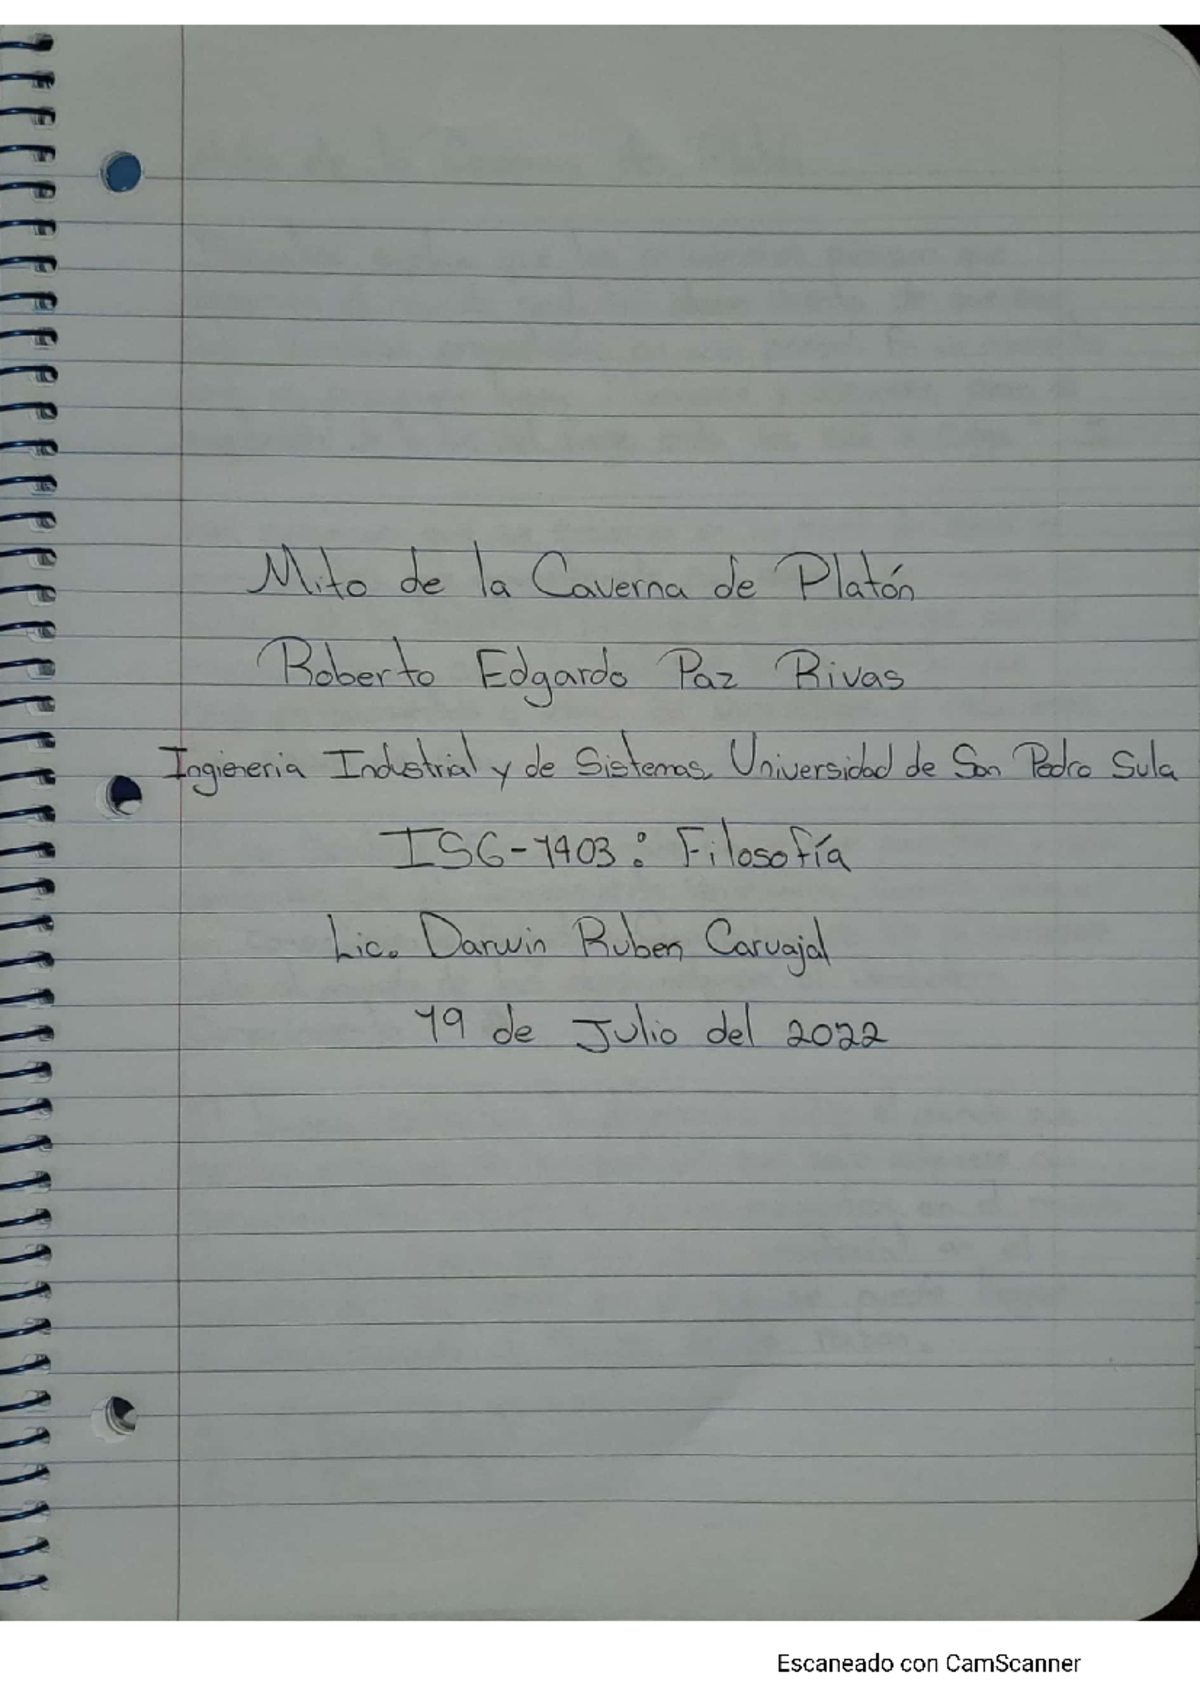 Mito de la Caverna de Platón
Roberto Edgardo Paz Rivas
Ingieneria Industrial y de Sistemas, Universidad de San Pedro Sula
ISG-1403: Filosofía
Lic. Darwin Ruben Carvajal
19 de Julio del 2022
Escaneado con CamScanner